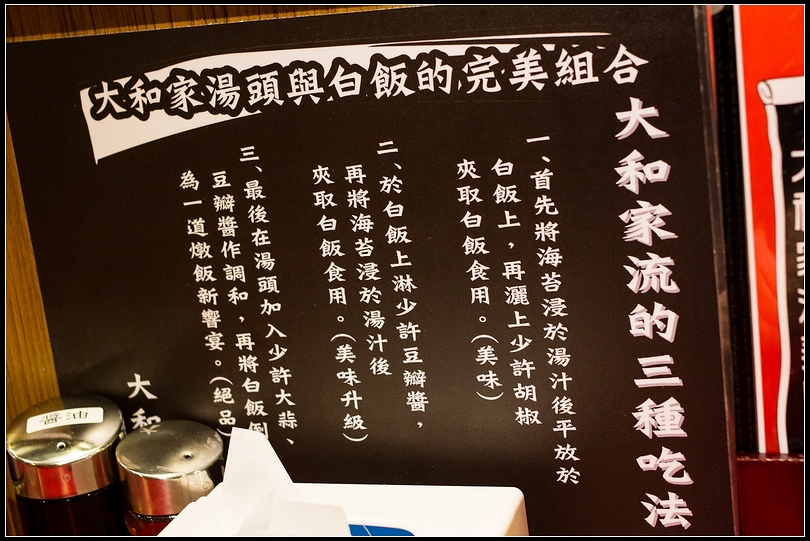 大和家湯頭與白飯的完美組合
大和家流的三種吃法
一、首先將海苔浸於湯汁後平放於
白飯上，再灑上少許胡椒
夾取白飯食用。（美味）
二、於白飯上淋少許豆瓣醬，
再將海苔浸於湯汁後
夾取白飯食用。（美味升級）
三、最後在湯頭加入少許大蒜、
豆瓣醬作調和，再將白飯倒
為一道燉飯新饗宴。（絕品
大和
醬油